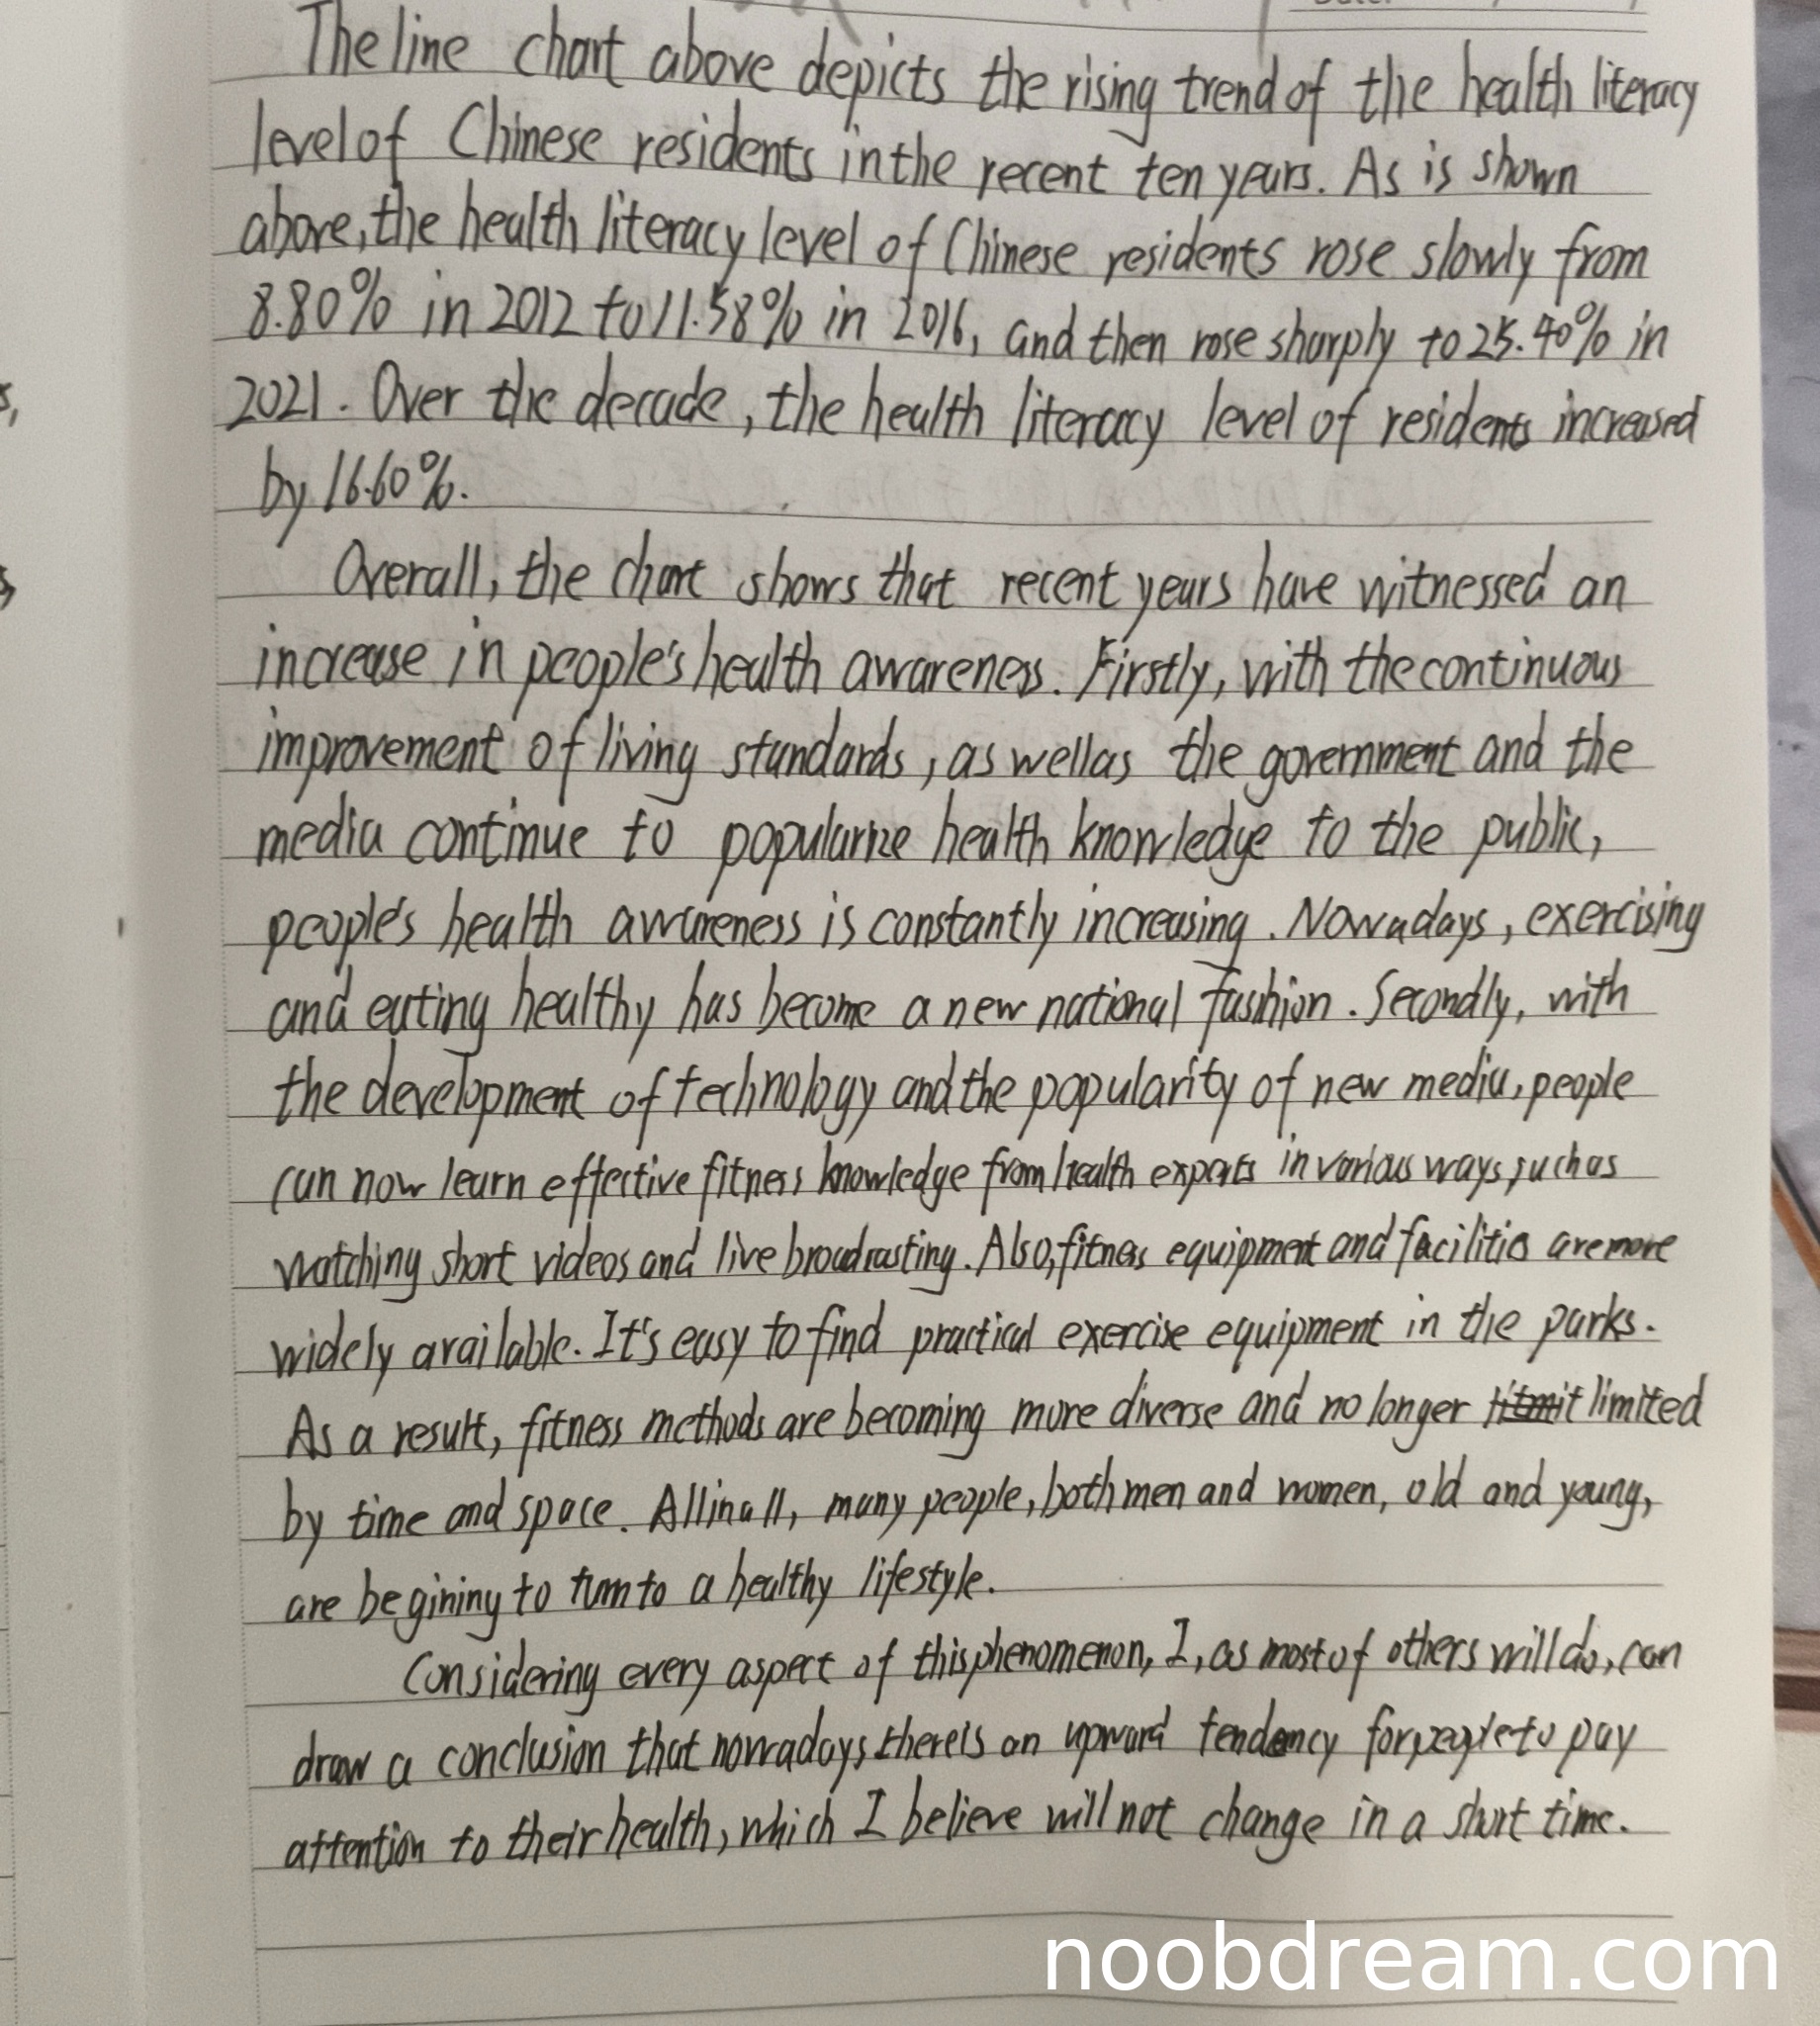 The line chart above depicts the rising trend of the health literacy
level of Chinese residents in the recent ten years. As is shown
above, the health literacy level of Chinese residents rose slowly from
8.80% in 2012 to 11.58% in 2016, and then rose sharply to 25.40% in
2021. Over the decade, the health literacy level of residents increased
by 16.60%.
Overall, the chart shows that recent years have witnessed an
increase in people's health awareness. Firstly, with the continuous
improvement of living standards, as well as the government and the
media continue to popularize health knowledge to the public,
people's health awareness is constantly increasing. Nowadays, exercising
and eating healthy has become a new national fashion. Secondly, with
the development of technology and the popularity of new media, people
can now learn effective fitness knowledge from health experts in various ways, such as
watching short videos and live broadcasting. Also, fitness equipment and facilities are more
widely available. It's easy to find practical exercise equipment in the parks.
As a result, fitness methods are becoming more diverse and no longer limited
by time and space. All in all, many people, both men and women, old and young,
are begining to turn to a healthy lifestyle.
Considering every aspect of this phenomenon, I, as most of others will do, can
draw a conclusion that nowadays there is an upward tendency for people to pay
attention to their health, which I believe will not change in a short time.
noobdream.com